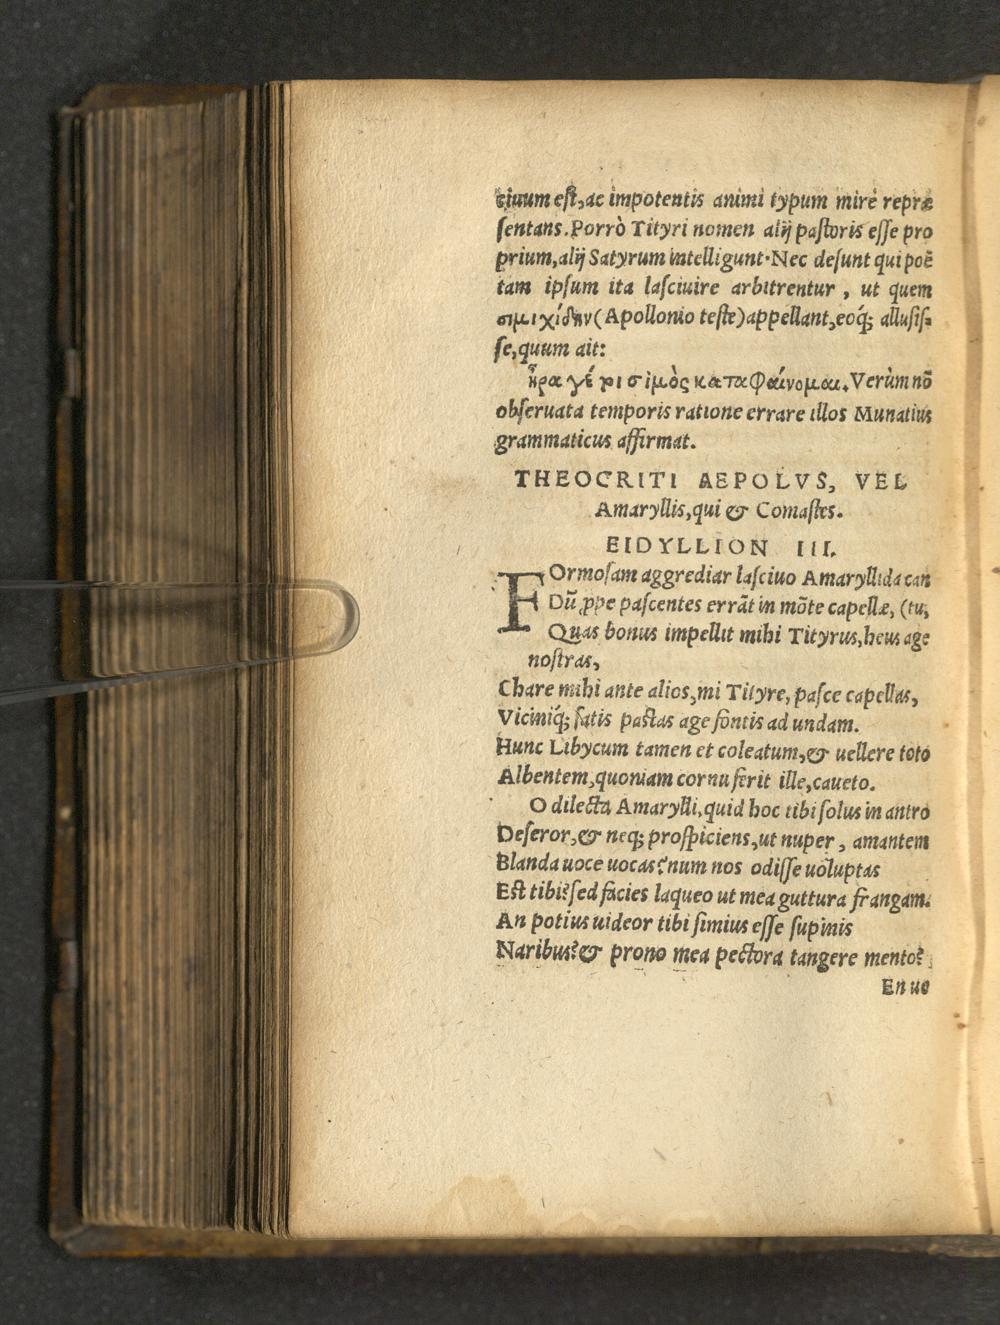 ciuum est, ac impotentis animi typum mirè repræ
sentans. Porrò Tityri nomen alij pastoris esse pro
prium, alij Satyrum intelligunt. Nec desunt qui poë
tam ipsum ita lasciuire arbitrentur, ut quem
σιμιχίδην (Apollonio teste) appellant, eoq́; allusis-
se, quum ait:
ἦρα γέ τοι σιμὸς καταφαίνομαι. Verùm nõ
obseruata temporis ratione errare illos Munatius
grammaticus affirmat.
THEOCRITI AEPOLVS, VEL
Amaryllis, qui & Comastes.
EIDYLLION III.
FOrmosam aggrediar lasciuo Amaryllida can
Dũ ꝓpe pascentes errãt in mõte capellæ, (tu,
Quas bonus impellit mihi Tityrus, heus age
nostras,
Chare mihi ante alios, mi Tityre, pasce capellas,
Viciniq́; satis pastas age fontis ad undam.
Hunc Libycum tamen et coleatum, & uellere toto
Albentem, quoniam cornu ferit ille, caueto.
O dilecta Amarylli, quid hoc tibi solus in antro
Deseror, & neq; prospiciens, ut nuper, amantem
Blanda uoce uocas? num nos odisse uoluptas
Est tibi? sed facies laqueo ut mea guttura frangam.
An potius uideor tibi simius esse supinis
Naribus? & prono mea pectora tangere mento?
En ue